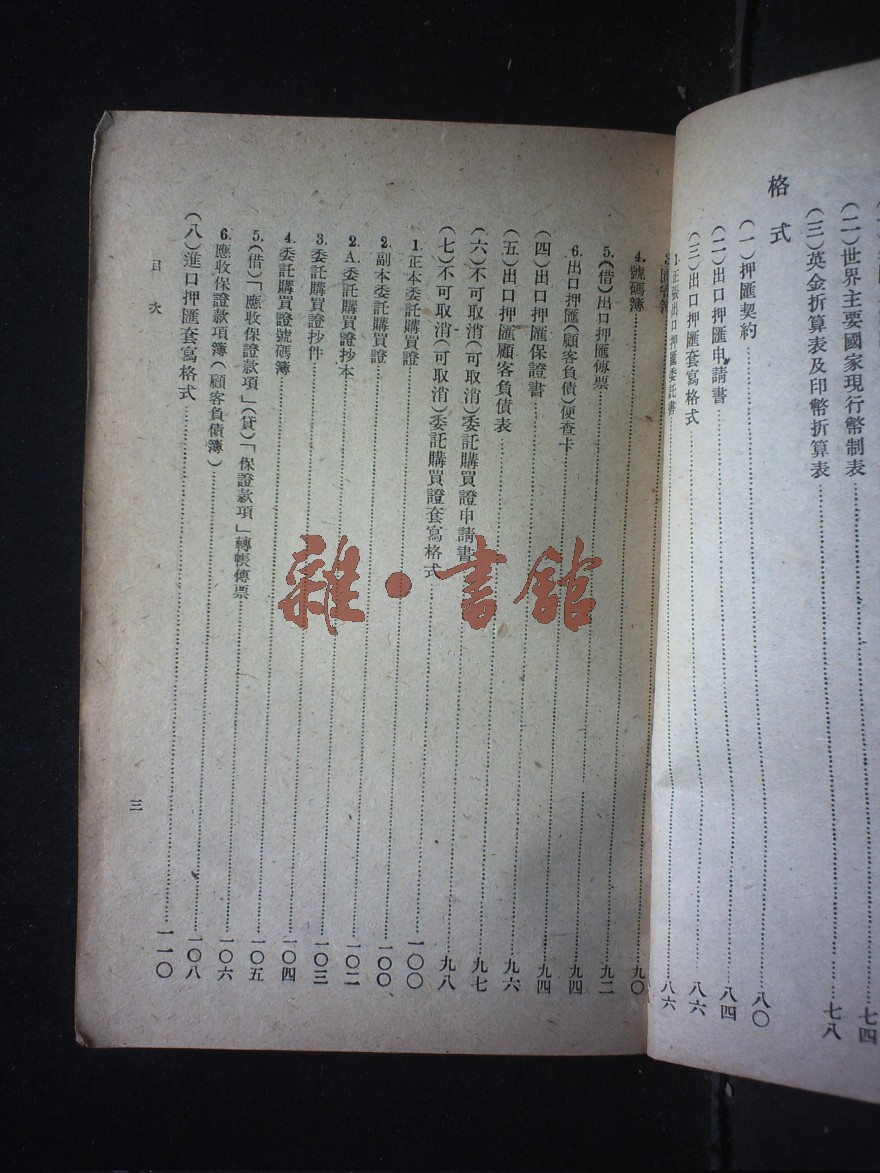 (二)世界主要國家現行幣制表……七四
(三)英金折算表及印幣折算表……七八
格式
(一)押匯契約……八〇
(二)出口押匯申請書……八四
(三)出口押匯套寫格式……八六
1.正張出口押匯委託書……八六
4.號碼簿……九二
5.(借)出口押匯傳票……九四
6.出口押匯(顧客負債)便查卡……九四
(四)出口押匯保證書……九六
(五)出口押匯顧客負債表……九七
(六)不可取消(可取消)委託購買證申請書……九八
(七)不可取消(可取消)委託購買證套寫格式……一〇〇
1.正本委託購買證……一〇〇
2.副本委託購買證……一〇二
2.A.委託購買證抄本……一〇三
3.委託購買證抄件……一〇四
4.委託購買證號碼簿……一〇五
5.(借)「應收保證款項」(貸)「保證款項」轉帳傳票……一〇六
6.應收保證款項簿(顧客負債簿)……一〇八
(八)進口押匯套寫格式……一一〇
目次
三
雜·書館